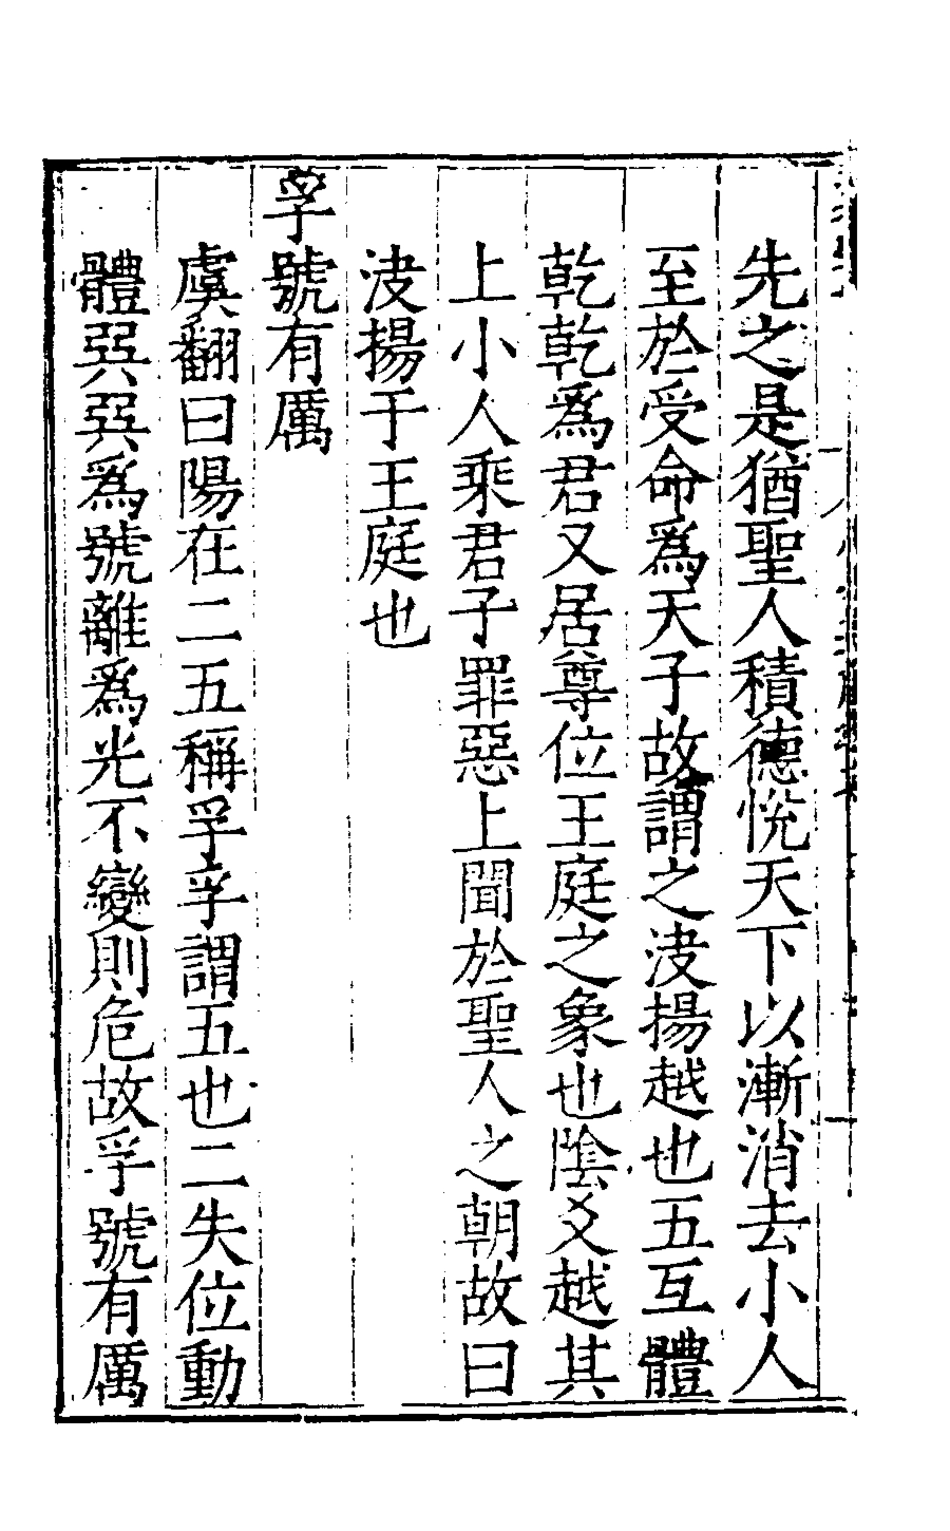 先之是猶聖人積德恱天下以漸消去小人
至於受命爲天子故謂之𣳅揚越也五互體
乾乾爲君又居尊位王庭之象也陰爻越其
上小人乘君子罪惡上聞於聖人之朝故曰
𣳅揚于王庭也
孚號有厲
虞翻曰陽在二五稱孚孚謂五也二失位動
體巽巽爲號離爲光不變則危故孚號有厲